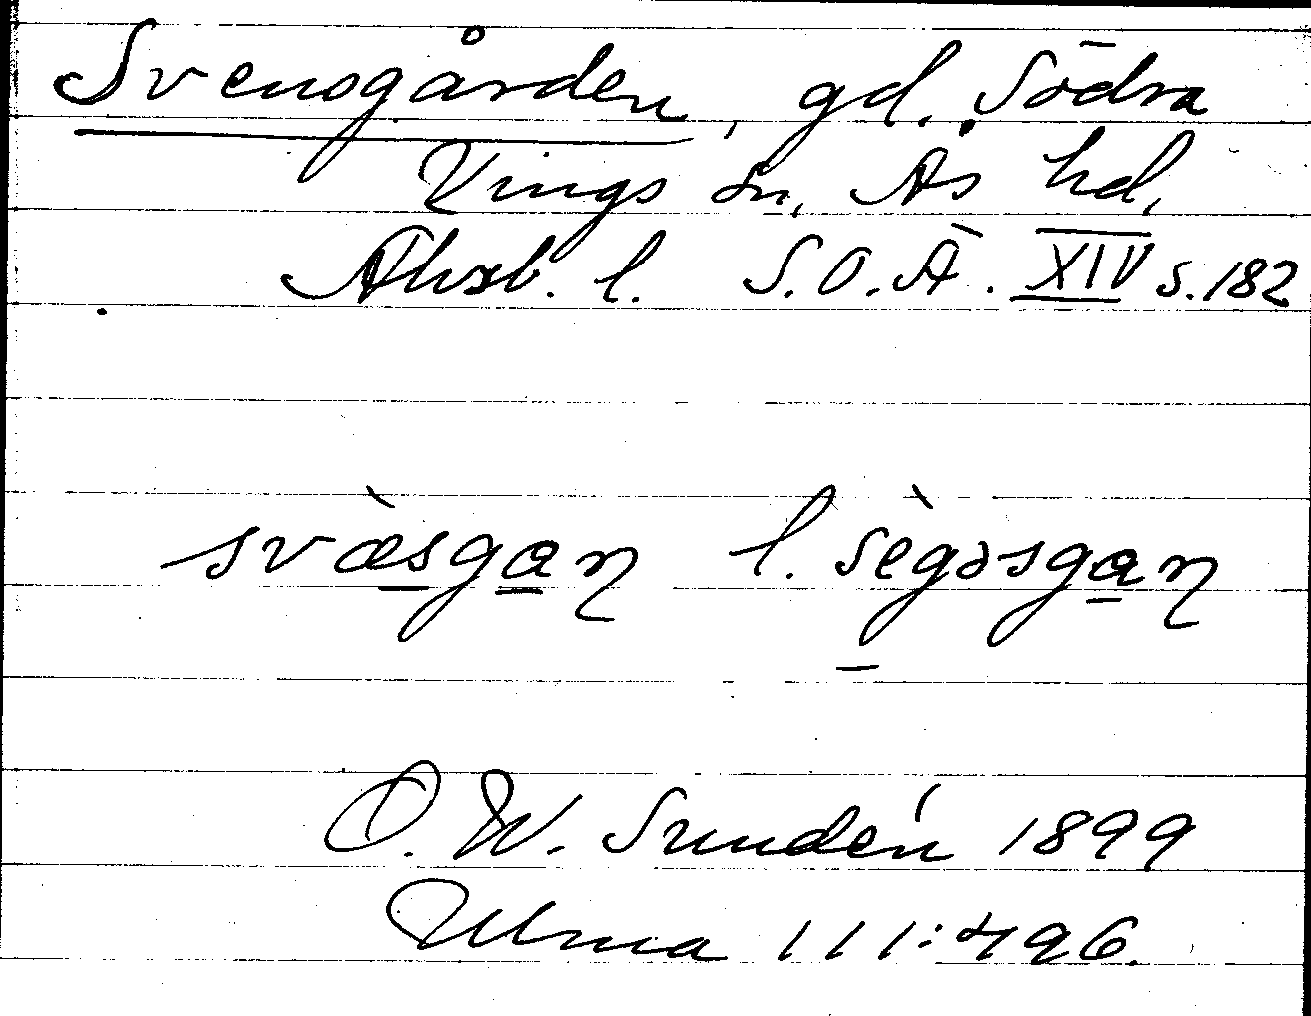 Svensgården, gd. Södra
Vings sn, Ås hd,
Älvsb. l. S.O.Ä. XIV s.182
svæ̀sgaɳ l. sègəsgaɳ
O. W. Sundén 1899
Ulma 111:496.